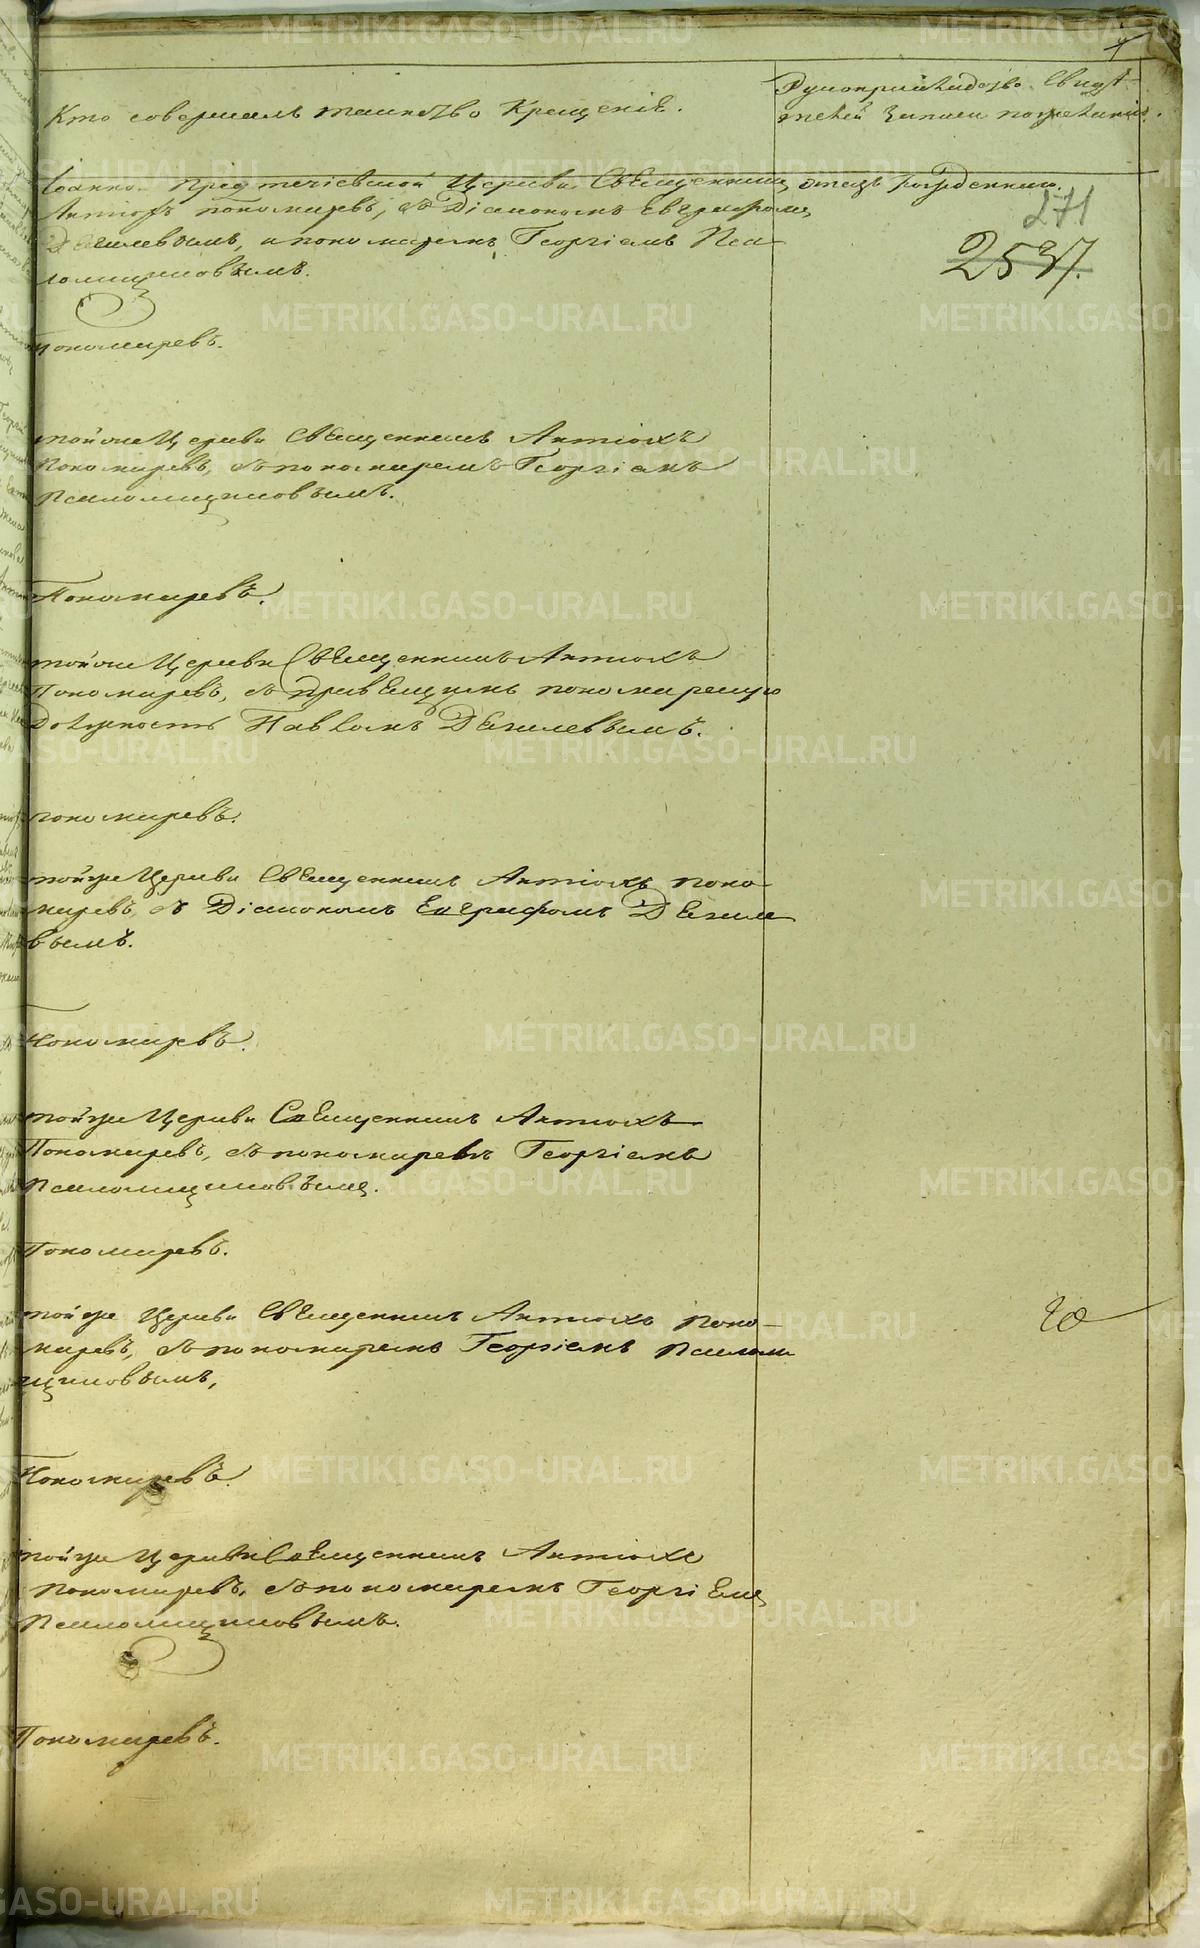 Кто совершалъ таинство Крещенія.
Рукоприкладство Свидѣ-
телей записи по желанію.
Іоанно-Предтечіевской Церкви Священникъ
Антіохъ Пономаревъ, съ Діакономъ Евграфомъ
Дягилевымъ, и пономаремъ Георгіемъ Пса-
ломщиковымъ.
271
2537.
Пономаревъ.
той же Церкви Священникъ Антіохъ
Пономаревъ, съ пономаремъ Георгіемъ
Псаломщиковымъ.
Пономаревъ.
той же Церкви Священникъ Антіохъ
Пономаревъ, съ правящимъ пономарскую
должность Павломъ Дягилевымъ.
Пономаревъ.
той же Церкви Священникъ Антіохъ Поно-
маревъ, съ Діакономъ Евграфомъ Дягиле
вымъ.
Пономаревъ.
той же Церкви Священникъ Антіохъ
Пономаревъ, съ пономаремъ Георгіемъ
Псаломщиковымъ.
Пономаревъ.
той же Церкви Священникъ Антіохъ Поно-
маревъ, съ пономаремъ Георгіемъ Псалом
щиковымъ,
Пономаревъ.
той же Церкви Священникъ Антіохъ
Пономаревъ, съ пономаремъ Георгіемъ
Псаломщиковымъ.
Пономаревъ.
METRIKI.GASO-URAL.RU